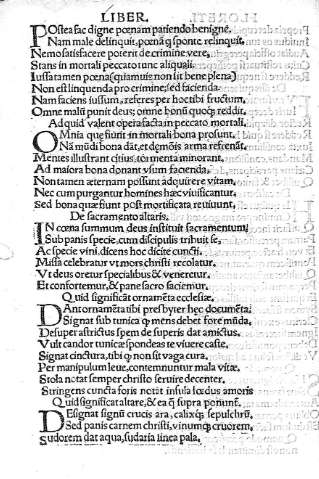 LIBER.
POstea fac digne pœnam patiendo benigne.
Nam male delinquit, pœnā q̃ sponte relinquit.
Nemo satisfacere poterit de crimine vere,
Stans in mortali peccato tunc aliquali.
Iussa tamen pœna (quamuis non sit bene plena)
Non est linquenda pro crimine; sed facienda.
Nam faciens iussum, referes per hoc tibi fructum,
Omne malū punit deus; omne bonū quoq; reddit.
Ad quid valent opera facta in peccato mortali.
OMnia que fiunt in mortali bona prosunt.
Nā mūdi bona dāt, et demōis arma refrenāt.
Mentes illustrant citius, tormenta minorant.
Ad maiora bona donant vsum facienda.
Non tamen æternam possunt adquirere vitam,
Nec cum purgantur homines hæc viuificantur.
Sed bona quæ fiunt post mortificata reuiuunt,
De sacramento altaris.
IN cœna summum deus instituit sacramentum,
Sub panis specie, cum discipulis tribuit se,
Ac specie vini. dicens hoc dicite cuncti.
Missa celebratur vt mors christi recolatur.
Vt deus oretur specialibus & veneretur.
Et confortemur, & pane sacro saciemur.
Quid significāt ornamēta ecclesiæ.
DAnt ornamēta tibi presbyter hęc documēta;
Signat sub tunica q̃ mens debet fore mūda.
Desuper astrictus spem de superis dat amictus.
Vult candor tunicæ spondeas te viuere caste.
Signat cinctura, tibi q̃ non sit vaga cura.
Per manipulum leue, contemnuntur mala vitæ.
Stola notat semper christo seruire decenter.
Stringens cuncta foris notāt insula lœdus amoris
Quid significat altare, & ea q̃ supra ponunt̃.
DEsignat signū crucis ara, calixq; sepulchrū.
Sed panis carnem christi, vinumq; cruorem,
Sudorem dat aqua, sudaria linea pala,